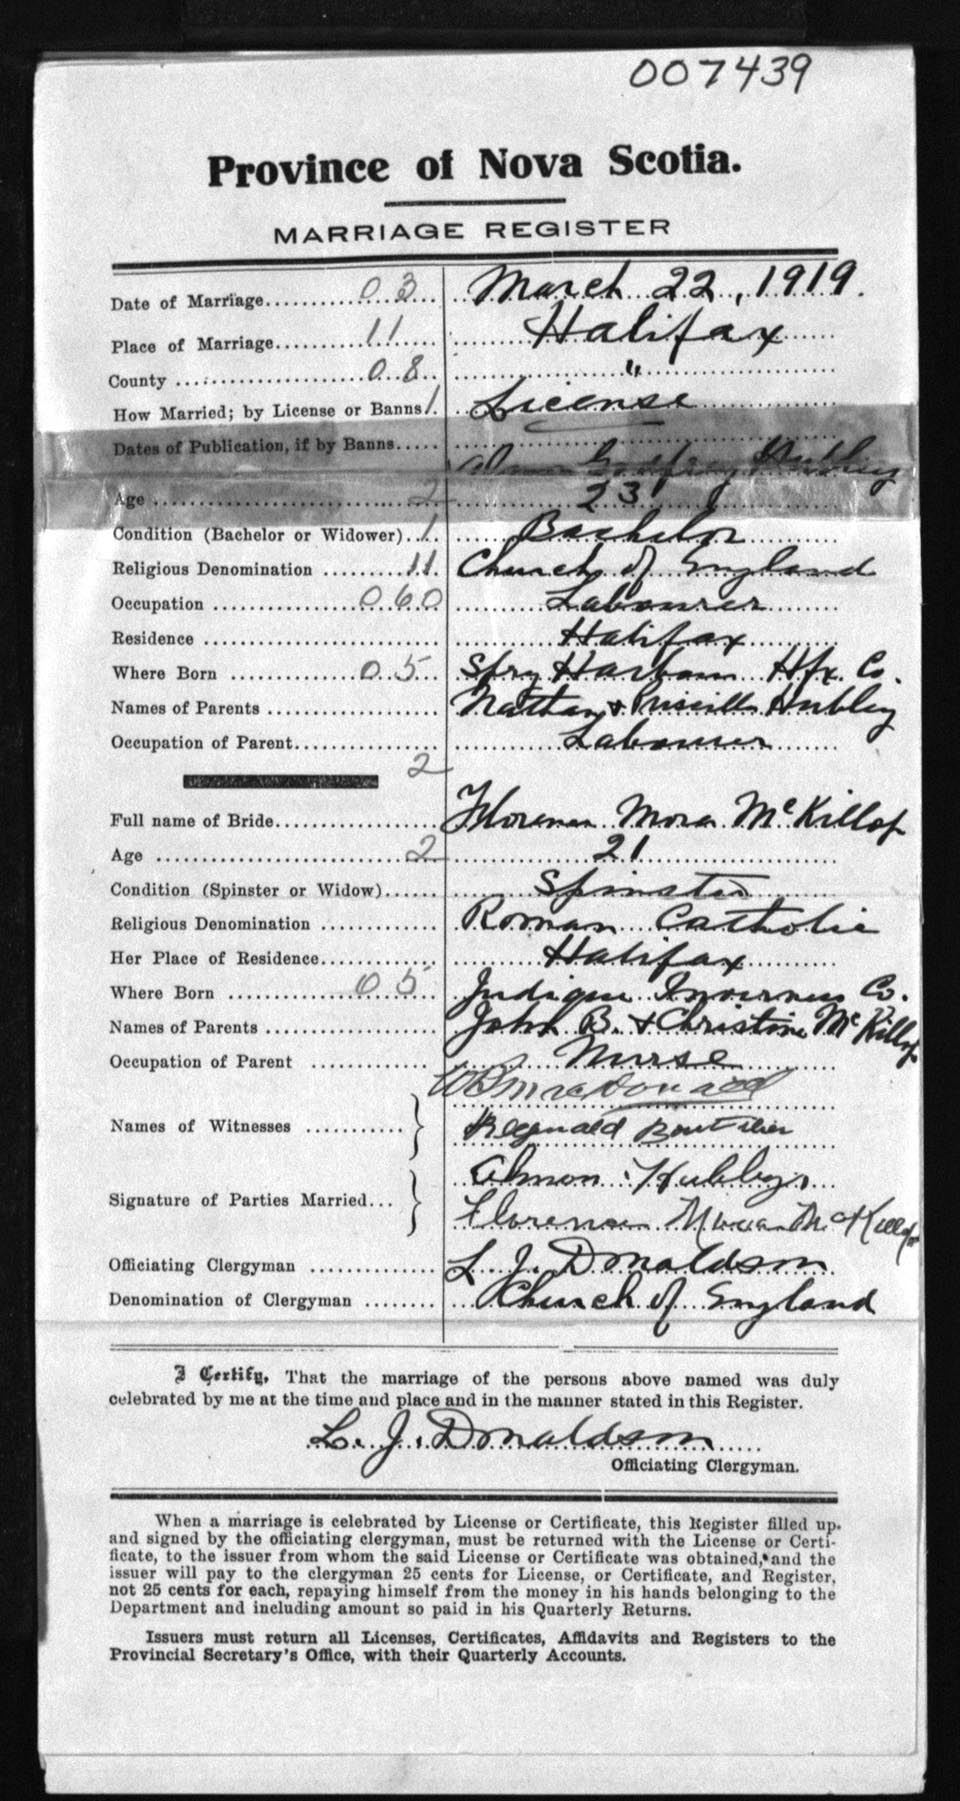 007439
Province of Nova Scotia.
MARRIAGE REGISTER
Date of Marriage 03 March 22, 1919.
Place of Marriage 11 Halifax
County 08 "
How Married; by License or Banns 1 License
Dates of Publication, if by Banns
Godfrey Hubley
Age 2 23
Condition (Bachelor or Widower) 1 Bachelor
Religious Denomination 11 Church of England
Occupation 060 Labourer
Residence Halifax
Where Born 05 Spry Harbour Hfx. Co.
Names of Parents Nathan & Priscilla Hubley
Occupation of Parent Labourer
2
Full name of Bride Florence Mora McKillop
Age 2 21
Condition (Spinster or Widow) Spinster
Religious Denomination Roman Catholic
Her Place of Residence Halifax
Where Born 05 Judique Inverness Co.
Names of Parents John B. & Christine McKillop
Occupation of Parent Nurse
Names of Witnesses W B MacDonald
Reginald Boutilier
Signature of Parties Married Almon Hubley
Florence Mora McKillop
Officiating Clergyman L. J. Donaldson
Denomination of Clergyman Church of England
I Certify, That the marriage of the persons above named was duly
celebrated by me at the time and place and in the manner stated in this Register.
L. J. Donaldson
Officiating Clergyman.
When a marriage is celebrated by License or Certificate, this Register filled up,
and signed by the officiating clergyman, must be returned with the License or Certi-
ficate, to the issuer from whom the said License or Certificate was obtained, and the
issuer will pay to the clergyman 25 cents for License, or Certificate, and Register,
not 25 cents for each, repaying himself from the money in his hands belonging to the
Department and including amount so paid in his Quarterly Returns.
Issuers must return all Licenses, Certificates, Affidavits and Registers to the
Provincial Secretary's Office, with their Quarterly Accounts.